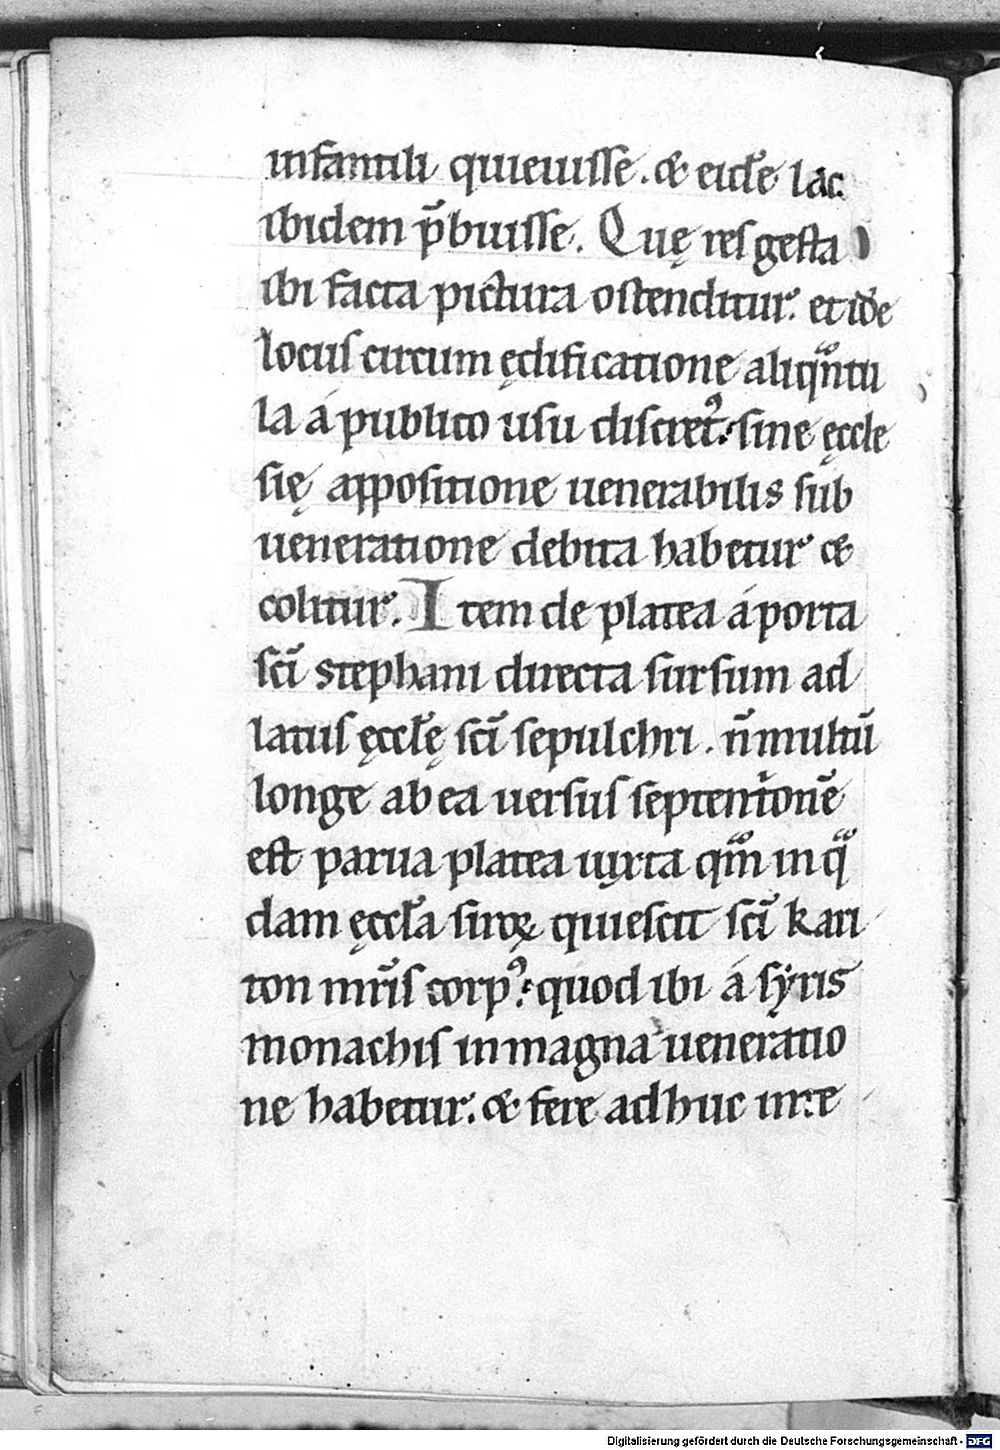 infantili quieuisse. & eidē lac
ibidem p̄buisse. Quę res gesta
ibi facta pictura ostenditur. et idē
locus circum ędificatione aliqͣntu
la á publico usu discretꝰ. sine ęccle
się appositione uenerabilis sub
ueneratione debita habetur &
colitur. Item de platea á porta
sc̄i stephani directa sursum ad
latus ęcclę̄ sc̄i sepulchri. n̄ multū
longe ab ea uersus septent̄onē
est parua platea iuxta qͣm in qͣ
dam ęccl̄a siroꝝ quiescit sc̄i kari
ton mr̄is corpꝰ. quod ibi á sẏris
monachis in magna ueneratio
ne habetur. & fere adhuc inte
Digitalisierung gefördert durch die Deutsche Forschungsgemeinschaft - DFG